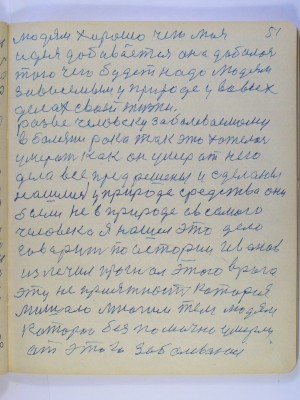 людям хорошо чего моя 51
идея добивается она добился
того чего будет надо людям
зависемым у природе у всвех
делах своей жизни.
разве человеку заболеваемому
в болезни рока так это хотелося
умерать как он умер от него
дела все предрешены и сделаны
нашлися у природе средства они
были не в природе а в самого
человека я нашел это дело
говорит по истории Иванов
излечил прогнал этого врага
эту не приятность которая
мишало многим тем людям
которое без помощно умерли
от этого заболевания